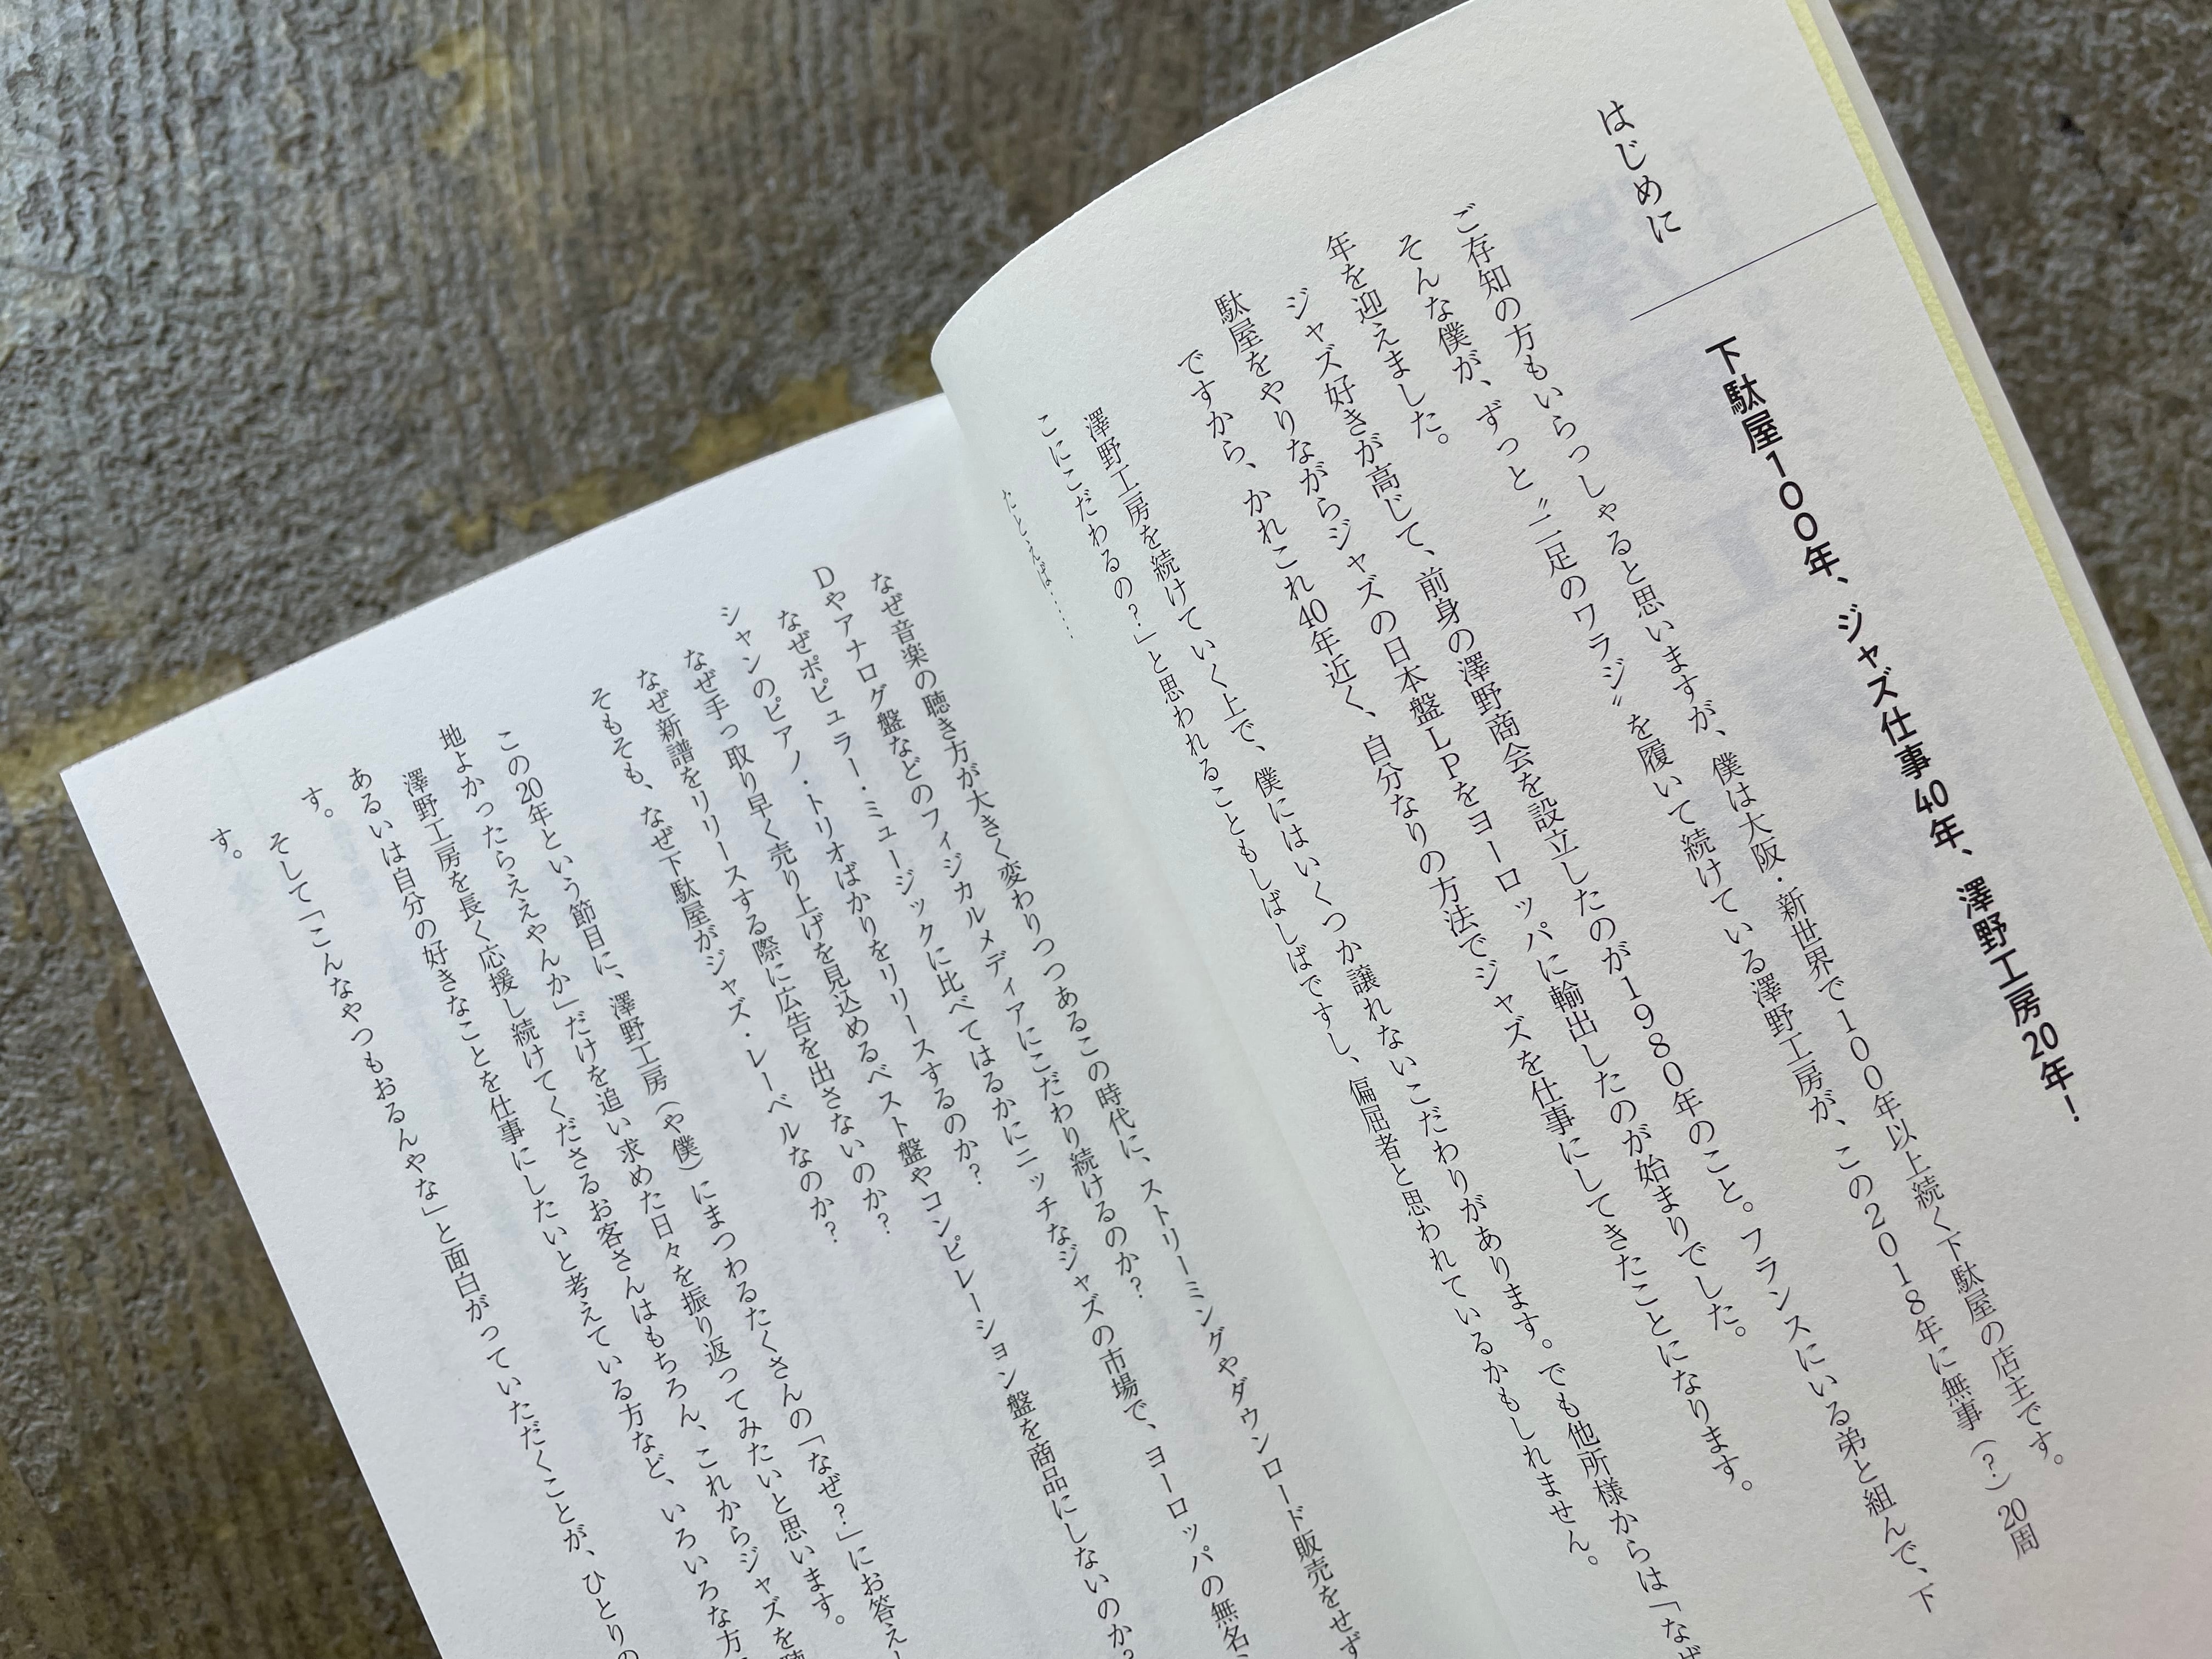 はじめに
下駄屋100年、ジャズ仕事40年、澤野工房20年！
ご存知の方もいらっしゃると思いますが、僕は大阪・新世界で100年以上続く下駄屋の店主です。
そんな僕が、ずっと〝二足のワラジ〟を履いて続けている澤野工房が、この2018年に無事（？）20周
年を迎えました。
ジャズ好きが高じて、前身の澤野商会を設立したのが1980年のこと。フランスにいる弟と組んで、下
駄屋をやりながらジャズの日本盤LPをヨーロッパに輸出したのが始まりでした。
ですから、かれこれ40年近く、自分なりの方法でジャズを仕事にしてきたことになります。
澤野工房を続けていく上で、僕にはいくつか譲れないこだわりがあります。でも他所様からは「なぜ
こにこだわるの？」と思われることもしばしばですし、偏屈者と思われているかもしれません。
たとえば……
なぜ音楽の聴き方が大きく変わりつつあるこの時代に、ストリーミングやダウンロード販売をせず
Dやアナログ盤などのフィジカルメディアにこだわり続けるのか？
なぜポピュラー・ミュージックに比べてはるかにニッチなジャズの市場で、ヨーロッパの無名
シャンのピアノ・トリオばかりをリリースするのか？
なぜ手っ取り早く売り上げを見込めるベスト盤やコンピレーション盤を商品にしないのか？
なぜ新譜をリリースする際に広告を出さないのか？
そもそも、なぜ下駄屋がジャズ・レーベルなのか？
この20年という節目に、澤野工房（や僕）にまつわるたくさんの「なぜ？」にお答え
地よかったらええやんか」だけを追い求めた日々を振り返ってみたいと思います。
澤野工房を長く応援し続けてくださるお客さんはもちろん、これからジャズを聴
あるいは自分の好きなことを仕事にしたいと考えている方など、いろいろな方
す。
そして「こんなやつもおるんやな」と面白がっていただくことが、ひとりの
す。